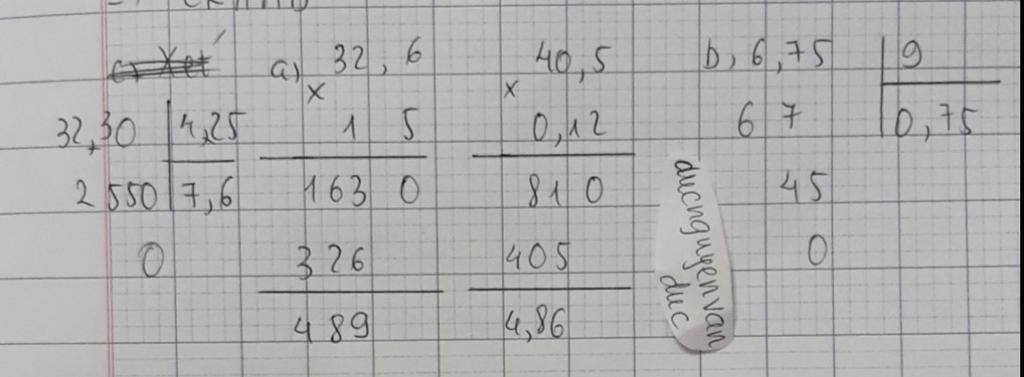 a) Xét a) 32,6 40,5 b, 6,75 9
x x
32,30 4,25 1 5 0,12 6 7 0,75
2 550 7,6 163 0 81 0 45
0 326 405 0
489 4,86
ducnguyenvan
duc